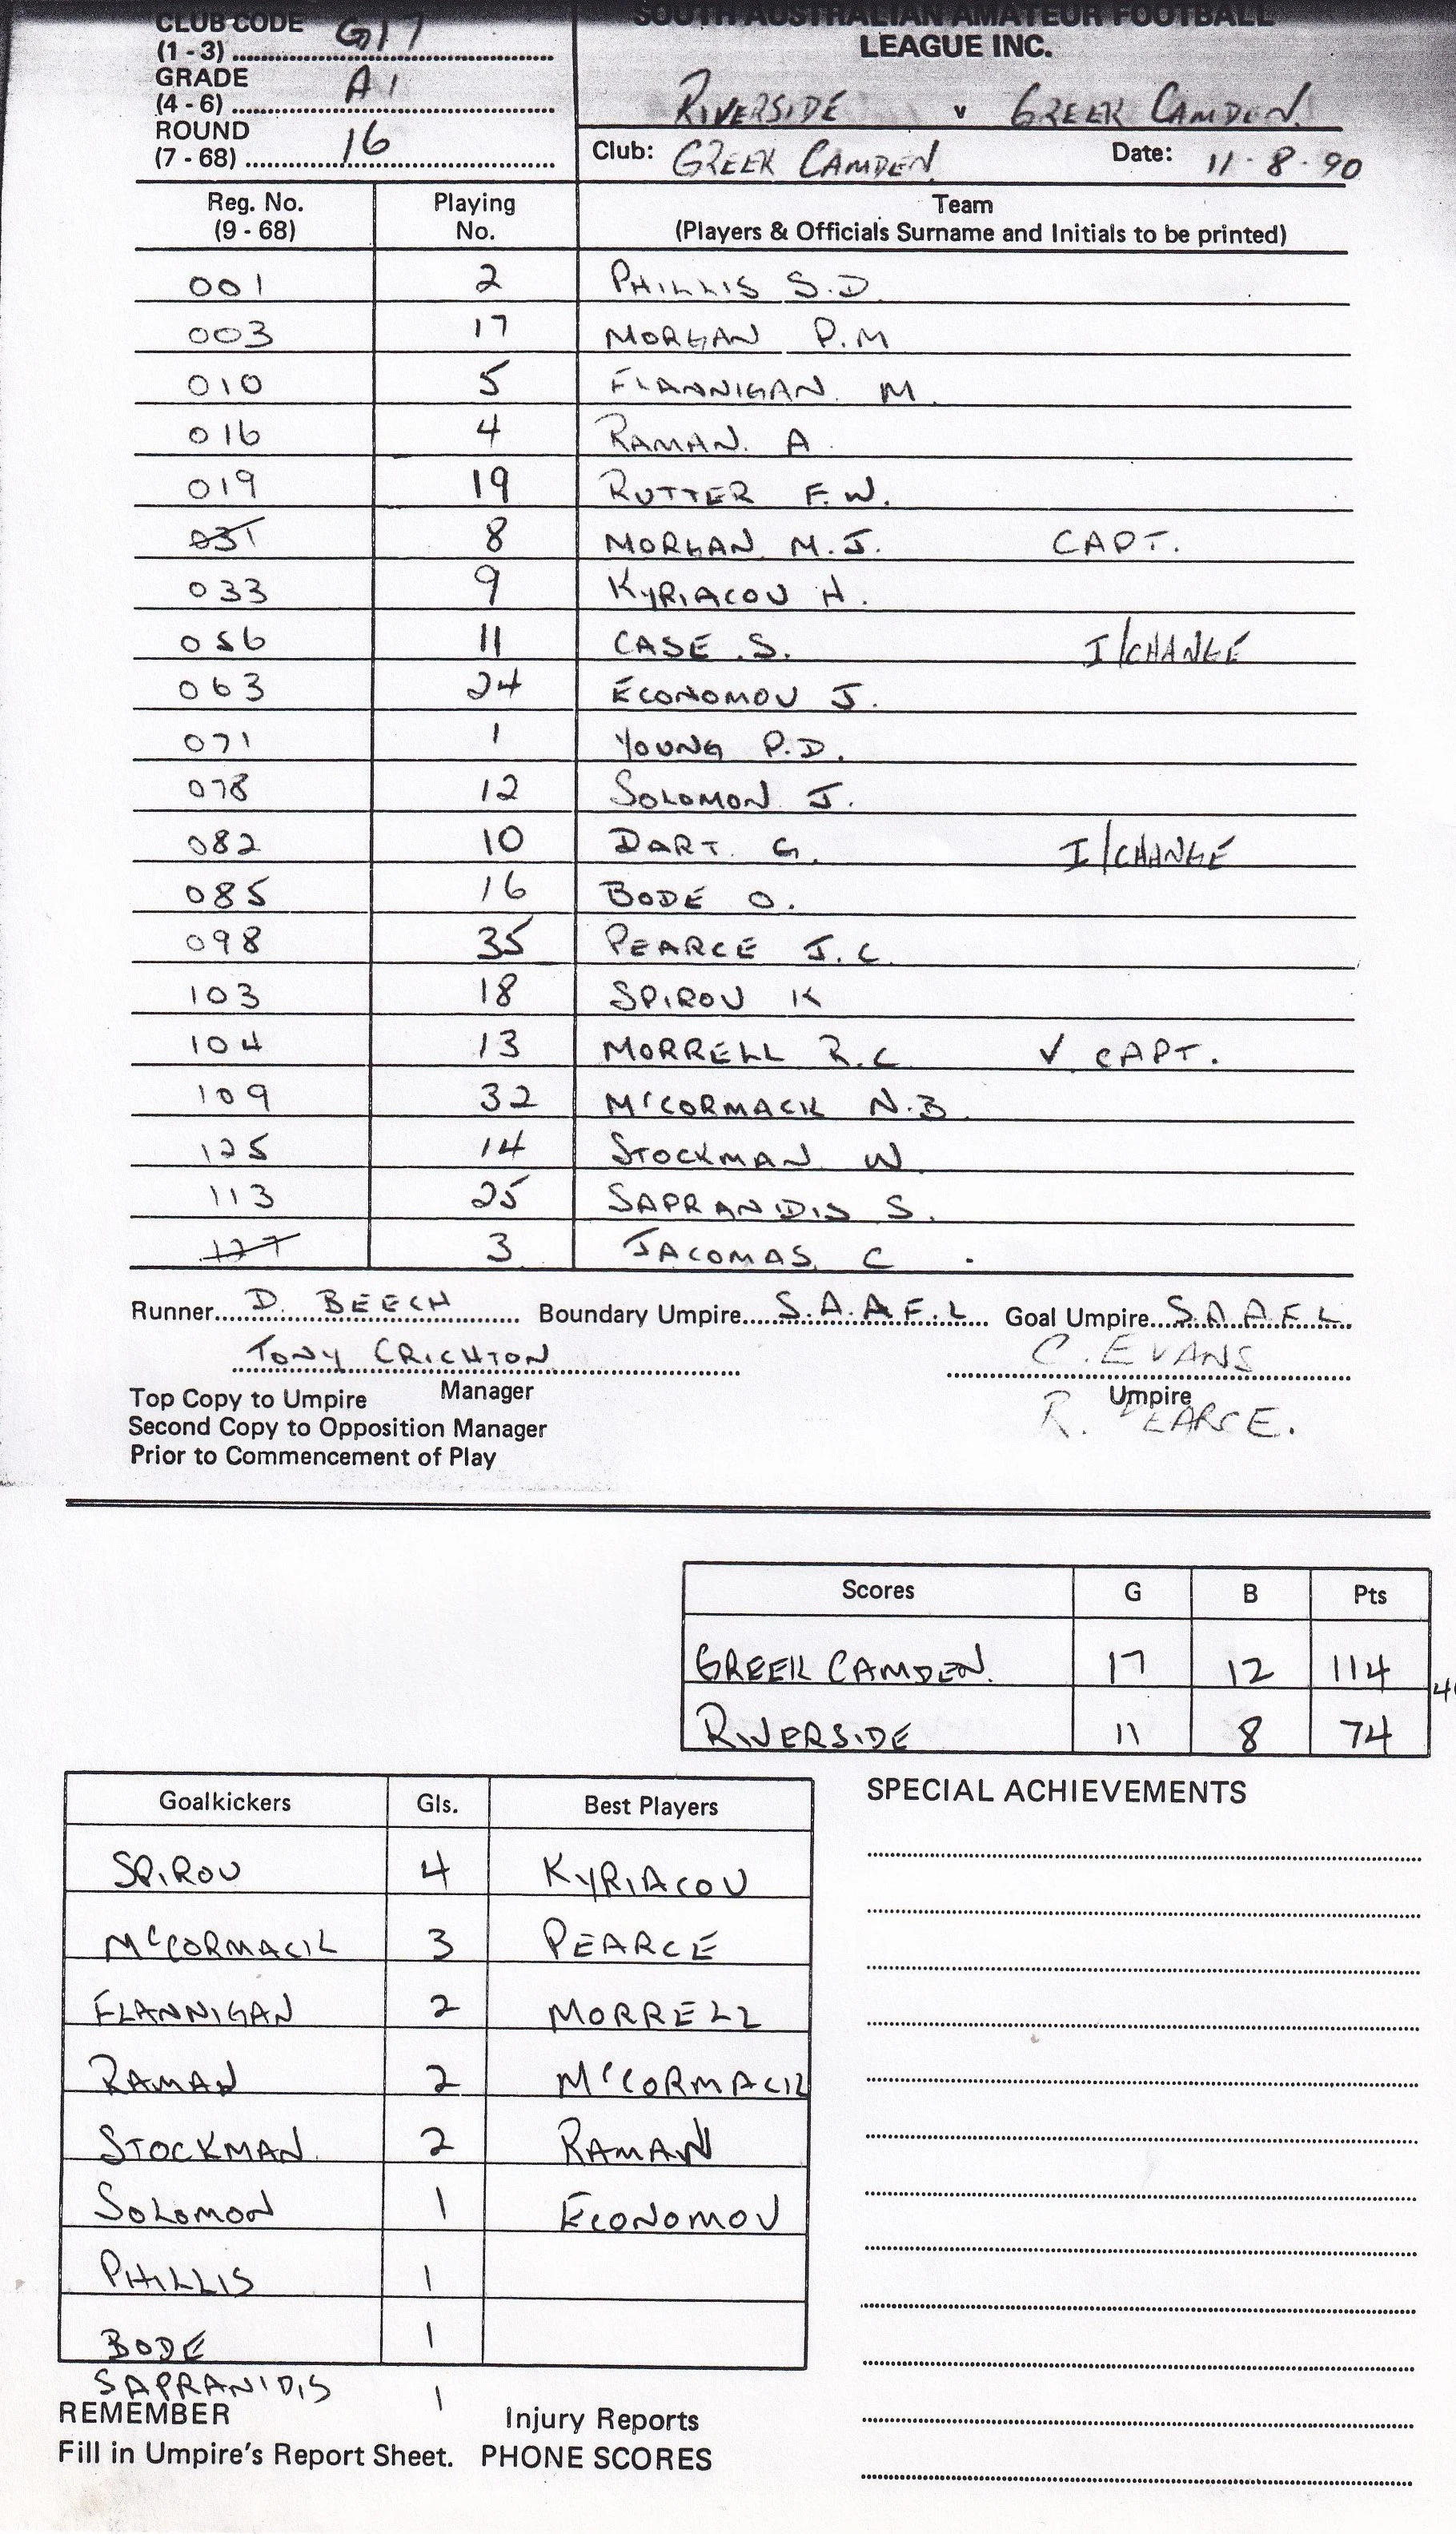 CLUB CODE
(1 - 3) G17
GRADE
(4 - 6) A1
ROUND
(7 - 68) 16
SOUTH AUSTRALIAN AMATEUR FOOTBALL
LEAGUE INC.
RIVERSIDE v GREEK CAMDEN.
Club: GREEK CAMDEN Date: 11·8·90
Reg. No. (9 - 68) Playing No. Team (Players & Officials Surname and Initials to be printed)
001 2 PHILLIS S.D.
003 17 MORGAN P.M
010 5 FLANNIGAN. M.
016 4 RAMAN. A.
019 19 RUTTER F.W.
031 8 MORGAN M.J. CAPT.
033 9 KYRIACOU H.
056 11 CASE .S. I/CHANGE
063 24 ECONOMOU J.
071 1 YOUNG P.D.
078 12 SOLOMON J.
082 10 DART. G. I/CHANGE
085 16 BODE O.
098 35 PEARCE J.C.
103 18 SPIROU K
104 13 MORRELL R.C V. CAPT.
109 32 McCORMACK N.B.
125 14 STOCKMAN W.
113 25 SAPRANIDIS S.
127 3 JACOMAS C .
Runner D. BEECH Boundary Umpire S.A.A.F.L Goal Umpire S.A.A.F.L.
TONY CRICHTON C. EVANS
Manager Umpire
R. PEARCE.
Top Copy to Umpire
Second Copy to Opposition Manager
Prior to Commencement of Play
Scores G B Pts
GREEK CAMDEN. 17 12 114
RIVERSIDE 11 8 74
Goalkickers Gls. Best Players
SPIROU 4 KYRIACOU
McCORMACK 3 PEARCE
FLANNIGAN 2 MORRELL
RAMAN 2 McCORMACK
STOCKMAN. 2 RAMAN
SOLOMON 1 ECONOMOU
PHILLIS 1
BODE 1
SAPRANIDIS 1
SPECIAL ACHIEVEMENTS
REMEMBER Injury Reports
Fill in Umpire's Report Sheet. PHONE SCORES